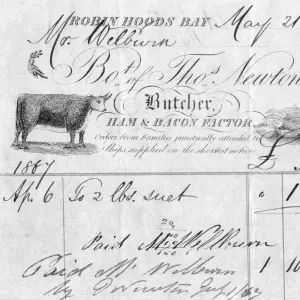 ROBIN HOODS BAY May 21
Mr. Welburn
Bot. of Thos. Newton
Butcher,
HAM & BACON FACTOR
Orders from Families punctually attended to
Ships supplied on the shortest notice.
£
1867
Ap 6 To 2 lbs. suet " 1
Paid Welburn
Paid Mr Welburn 1 10
by